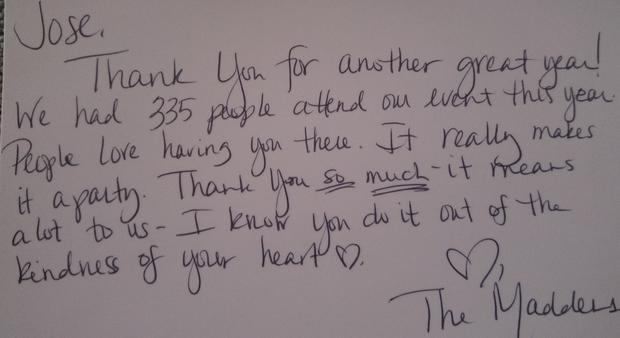 Jose,
Thank You for another great year!
We had 335 people attend our event this year.
People Love having you there. It really makes
it a party. Thank You so much - it means
a lot to us - I know you do it out of the
kindness of your heart ♡.
♡,
The Madders